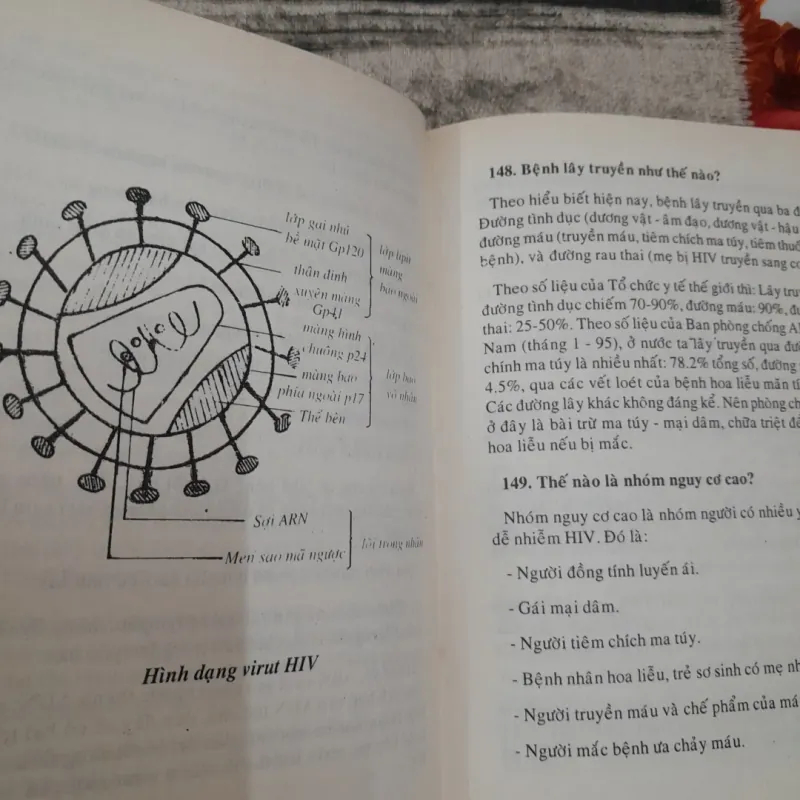 lớp gai nhú
bề mặt Gp120
lớp lipit
màng
bao ngoài
thân đinh
xuyên màng
Gp41
màng hình
chuông p24
màng bao
phía ngoài p17
lớp bao
vỏ nhân
Thể bên
Sợi ARN
Men sao mã ngược
lõi trong nhân
Hình dạng virut HIV
148. Bệnh lây truyền như thế nào?
Theo hiểu biết hiện nay, bệnh lây truyền qua ba đ
Đường tình dục (dương vật - âm đạo, dương vật - hậu
đường máu (truyền máu, tiêm chích ma túy, tiêm thuố
bệnh), và đường rau thai (mẹ bị HIV truyền sang co
Theo số liệu của Tổ chức y tế thế giới thì: Lây truy
đường tình dục chiếm 70-90%, đường máu: 90%, đư
thai: 25-50%. Theo số liệu của Ban phòng chống A
Nam (tháng 1 - 95), ở nước ta lây truyền qua đườ
chính ma túy là nhiều nhất: 78.2% tổng số, đường
4.5%, qua các vết loét của bệnh hoa liễu mãn tí
Các đường lây khác không đáng kể. Nên phòng ch
ở đây là bài trừ ma túy - mại dâm, chữa triệt để
hoa liễu nếu bị mắc.
149. Thế nào là nhóm nguy cơ cao?
Nhóm nguy cơ cao là nhóm người có nhiều y
dễ nhiễm HIV. Đó là:
- Người đồng tính luyến ái.
- Gái mại dâm.
- Người tiêm chích ma túy.
- Bệnh nhân hoa liễu, trẻ sơ sinh có mẹ nh
- Người truyền máu và chế phẩm của má
- Người mắc bệnh ưa chảy máu.